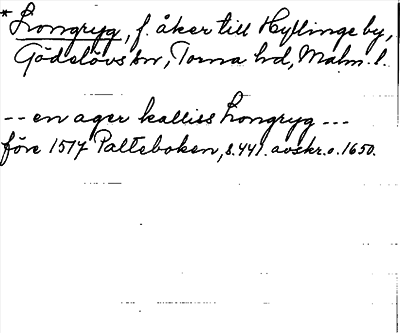 *Longryg, f. åker till Hyllinge by,
Gödelövs sn, Torna hd, Malm. l.
-- en ager kalliss Longryg ---
före 1517 Palteboken, s. 441. avskr. o. 1650.